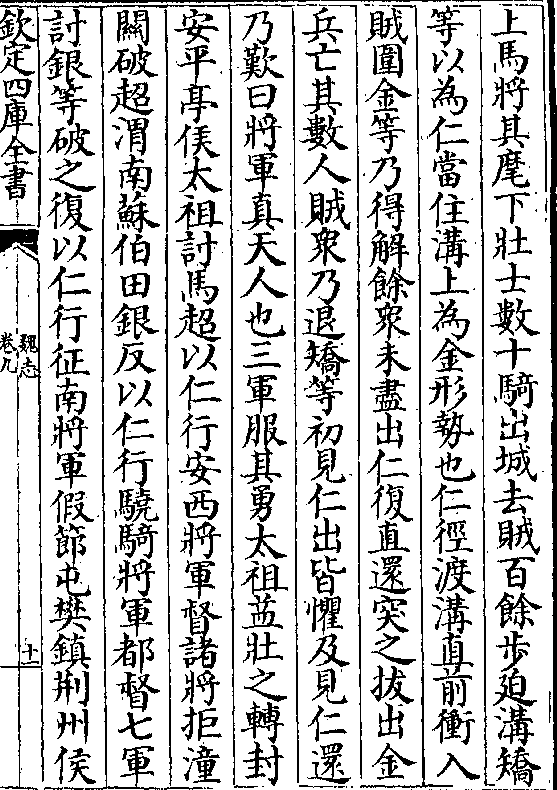 上馬將其麾下壯士數十騎出城去賊百餘步廹溝矯
等以為仁當住溝上為金形勢也仁徑渡溝直前衝入
賊圍金等乃得解餘衆未盡出仁復直還突之拔出金
兵亡其數人賊衆乃退矯等初見仁出皆懼及見仁還
乃歎曰將軍真天人也三軍服其勇太祖益壯之轉封
安平亭侯太祖討馬超以仁行安西將軍督諸將拒潼
關破超渭南蘇伯田銀反以仁行驍騎將軍都督七軍
討銀等破之復以仁行征南將軍假節屯樊鎮荆州侯
欽定四庫全書
魏志
卷九
十二